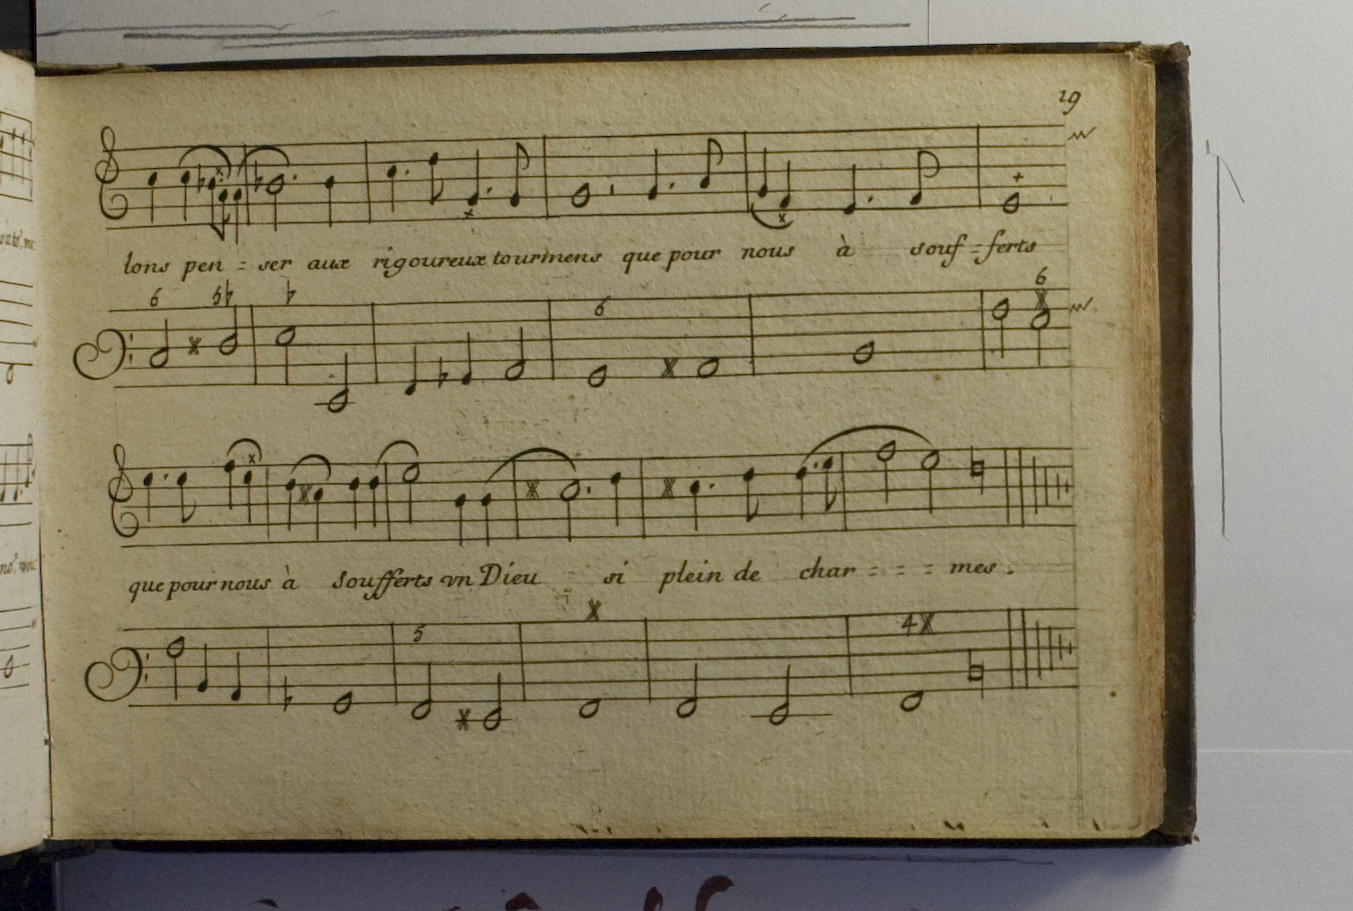 19
lons pen = ser aux rigoureux tourmens que pour nous à souf = ferts
6 5♭ ♭ 6 6
que pour nous à soufferts vn Dieu si plein de char = = = mes .
5 4